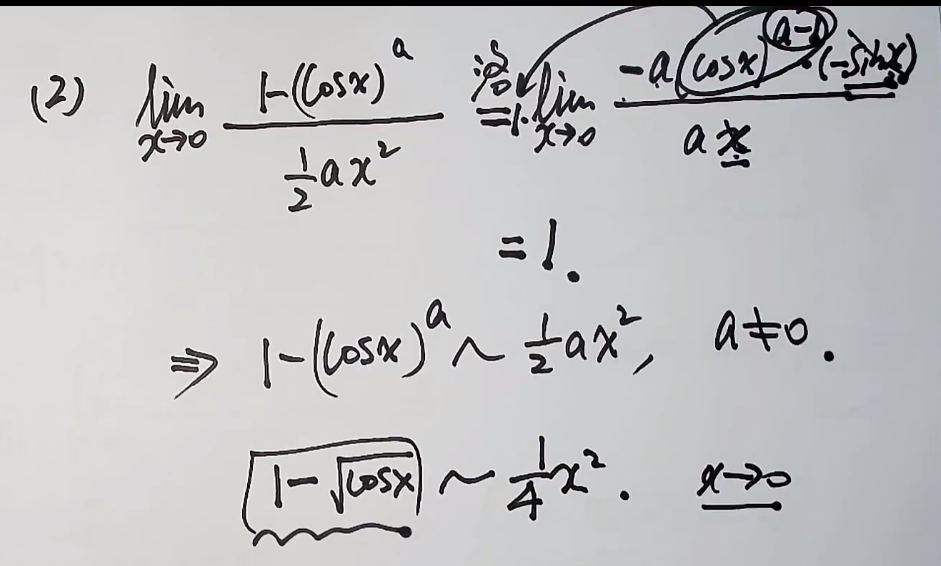 (2) lim x→0 (1-(cosx)^a)/(1/2 ax²) 0/0 = 1·lim x→0 (-a(cosx)^(a-1)·(-sinx))/(ax)
=1.
⇒ 1-(cosx)^a ~ 1/2 ax², a≠0.
1-√cosx ~ 1/4 x². x→0